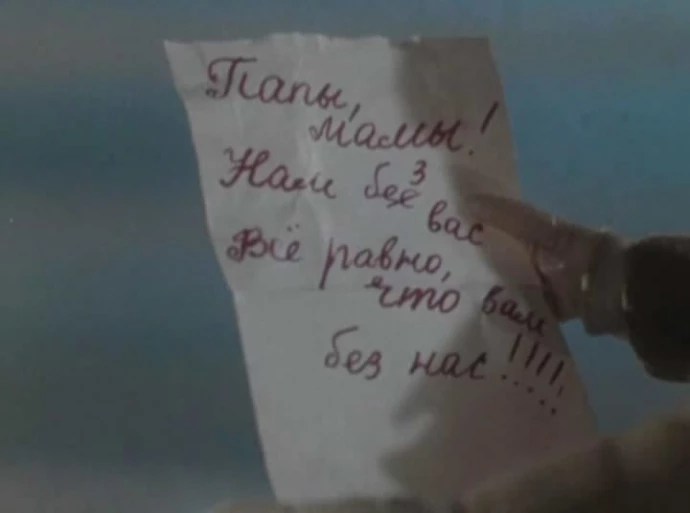 Папы,
мамы!
Нам без вас
Всё равно,
что вам
без нас!!!!